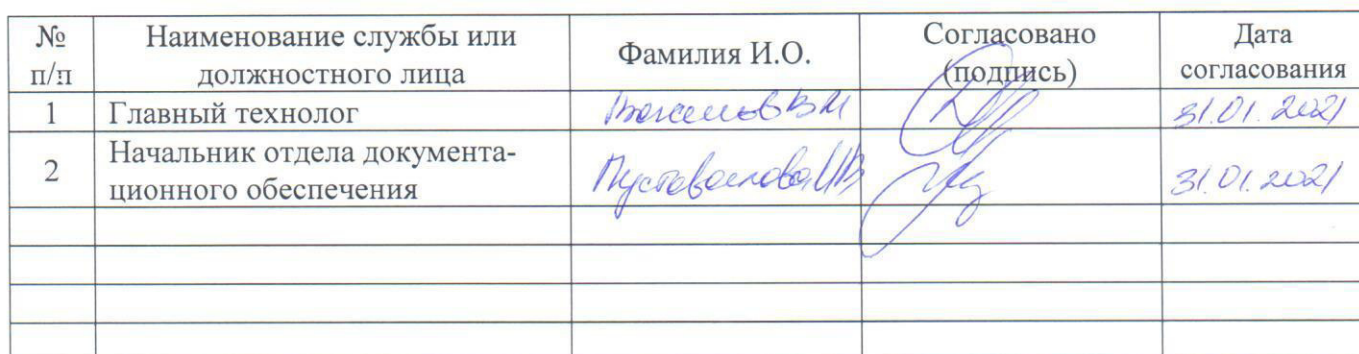 № п/п Наименование службы или должностного лица Фамилия И.О. Согласовано (подпись) Дата согласования
1 Главный технолог 31.01.2021
2 Начальник отдела документа-
ционного обеспечения 31.01.2021